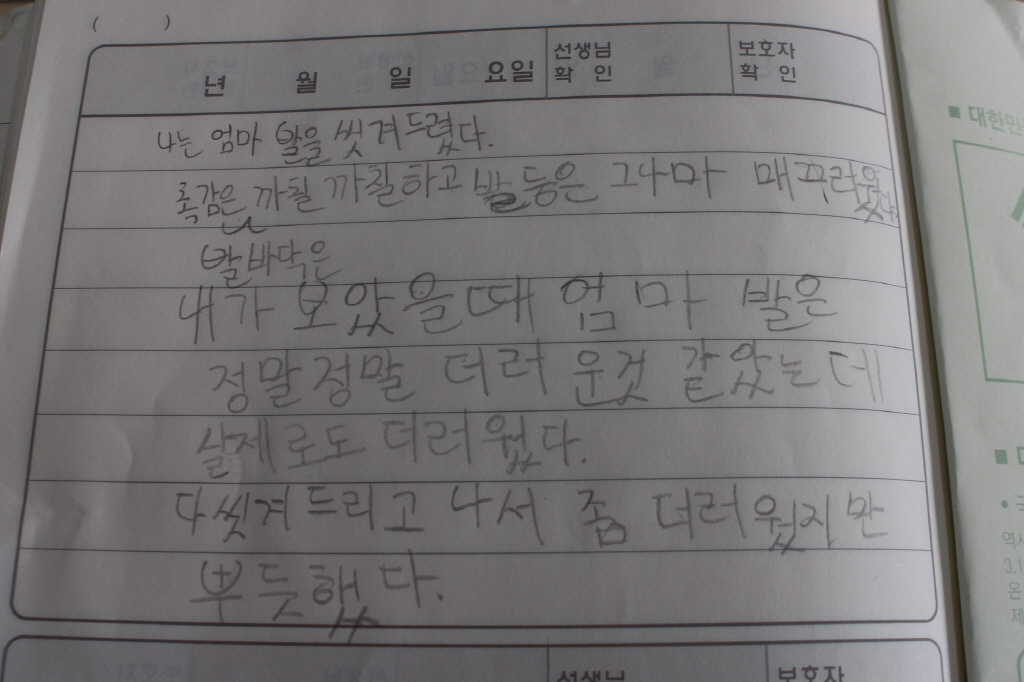 ( )
년 월 일 요일 선생님 확 인 보호자 확 인
나는 엄마 발을 씻겨드렸다.
촉감은 까칠 까칠하고 발등은 그나마 매꾸러웠다.
발바닥은
내가 보았을때 엄마 발은
정말정말 더러운것 같았는데
실제로도 더러웠다.
다씻겨드리고 나서 좀 더러웠지만
뿌듯했다.
선생님 보호자
■ 대한민
■
• 국
역사
3.1
온
제